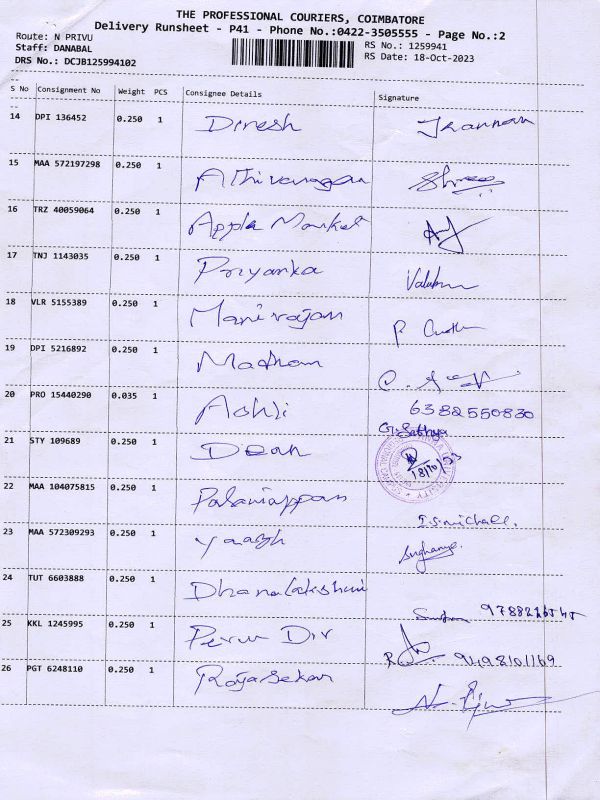 THE PROFESSIONAL COURIERS, COIMBATORE
Delivery Runsheet - P41 - Phone No.:0422-3505555 - Page No.:2
Route: N PRIVU
Staff: DANABAL
DRS No.: DCJB125994102
RS No.: 1259941
RS Date: 18-Oct-2023
S No Consignment No Weight PCS Consignee Details Signature
14 DPI 136452 0.250 1 Dinesh
15 MAA 572197298 0.250 1 Shree
16 TRZ 40059064 0.250 1 Apple Market
17 TNJ 1143035 0.250 1 Priyanka
18 VLR 5155389 0.250 1 Manirajan
19 DPI 5216892 0.250 1 Madhan
20 PRO 15440290 0.035 1 6382550830
G. Sathya
21 STY 109689 0.250 1 Dean 18/10/23
22 MAA 104075815 0.250 1 Palaniappan
23 MAA 572309293 0.250 1 Yaazh
24 TUT 6603888 0.250 1 Dhanalakshmi
25 KKL 1245995 0.250 1 9498101169
26 PGT 6248110 0.250 1 Rajasekar